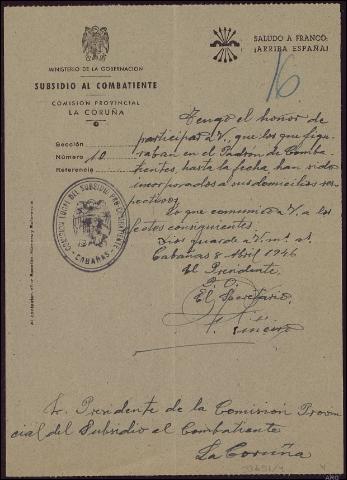 SALUDO A FRANCO:
¡ARRIBA ESPAÑA!
MINISTERIO DE LA GOBERNACION
SUBSIDIO AL COMBATIENTE
COMISION PROVINCIAL
LA CORUÑA
16
Sección
Número 10
Referencia
Tengo el honor de
participar a V. que los que figu-
raban en el Padrón de Comba-
tientes, hasta la fecha, han sido
incorporados a sus domicilios res-
pectivos.
Lo que comunico a V. a los
efectos consiguientes.
Dios guarde a V. m. a.
Cabañas 8 Abril 1946
El Presidente
P. O.
El Secretario
COMISION LOCAL DEL SUBSIDIO PRO-COMBATIENTE
- CABAÑAS -
Sr. Presidente de la Comisión Provin-
cial del Subsidio al Combatiente
La Coruña